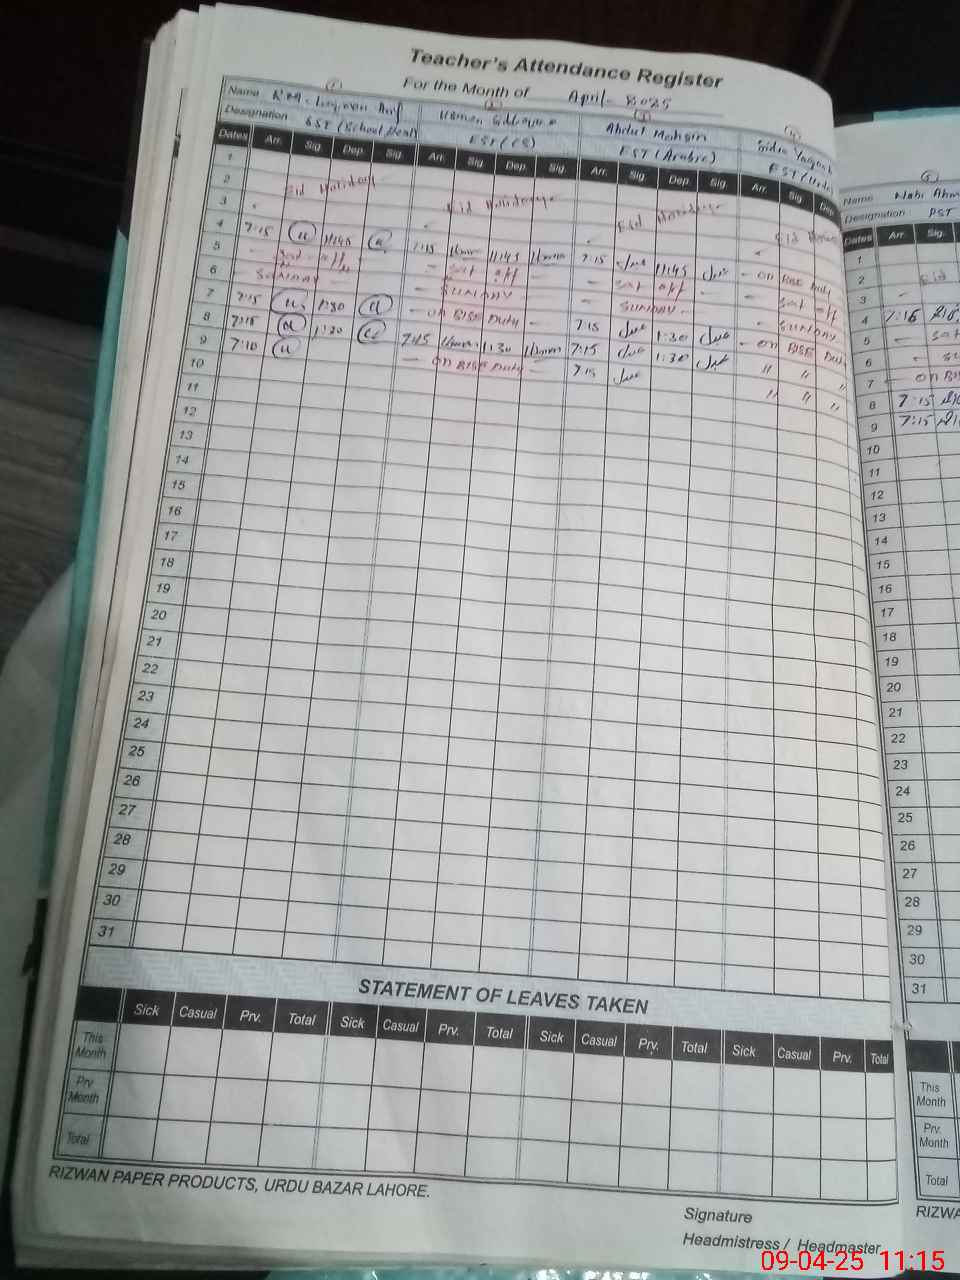 Teacher's Attendance Register
For the Month of April - 2025
1 2 3 4 5
Name
Designation SST (School Head) EST (CS) EST (Arabic) EST (Urdu
Name
Abdul Mohsin
Designation PST
Dates Arr. Sig. Dep. Sig. Arr. Sig. Dep. Sig. Arr. Sig. Dep. Sig. Arr. Sig. Dep
Dates Arr. Sig.
1
2 Eid Holidays Eid Holidays Eid Holidays Eid
3
4 7:15 11:45 7:15 11:45 7:15 11:45 - on BISE Duty
5 - Sat - off - Sat off - Sat off - Sat off
6 SUNDAY - - SUNDAY - SUNDAY - - SUNDAY
7 7:15 1:30 - on BISE Duty - 7:15 1:30 - on BISE Duty
8 7:15 1:30 7:45 1:30 7:15 1:30 " " "
9 7:10 - on BISE Duty - 7:15 " " "
10
11
12
13
14
15
16
17
18
19
20
21
22
23
24
25
26
27
28
29
30
31
1
2 Eid
3
4 7:15
5 - Sat
6 - Su
7 - on BIS
8 7:15
9 7:15
10
11
12
13
14
15
16
17
18
19
20
21
22
23
24
25
26
27
28
29
30
31
STATEMENT OF LEAVES TAKEN
Sick Casual Prv. Total Sick Casual Prv. Total Sick Casual Prv. Total Sick Casual Prv. Total
This Month
Prv Month
Total
This Month
Prv. Month
Total
RIZWAN PAPER PRODUCTS, URDU BAZAR LAHORE.
RIZWA
Signature
Headmistress / Headmaster
09-04-25 11:15